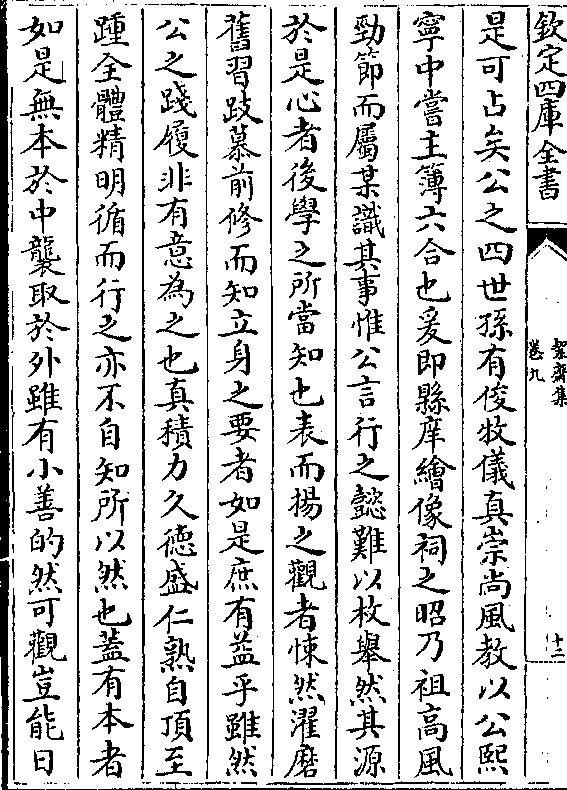 欽定四庫全書
絜齋集
卷九
十二
是可占矣公之四世孫有俊牧儀真崇尚風教以公熙
寧中嘗主簿六合也爰即縣庠繪像祠之昭乃祖高風
勁節而屬某識其事惟公言行之懿難以枚舉然其源
於是心者後學之所當知也表而揚之觀者悚然濯磨
舊習跂慕前修而知立身之要者如是庶有益乎雖然
公之踐履非有意為之也真積力久德盛仁熟自頂至
踵全體精明循而行之亦不自知所以然也蓋有本者
如是無本於中襲取於外雖有小善的然可觀豈能日